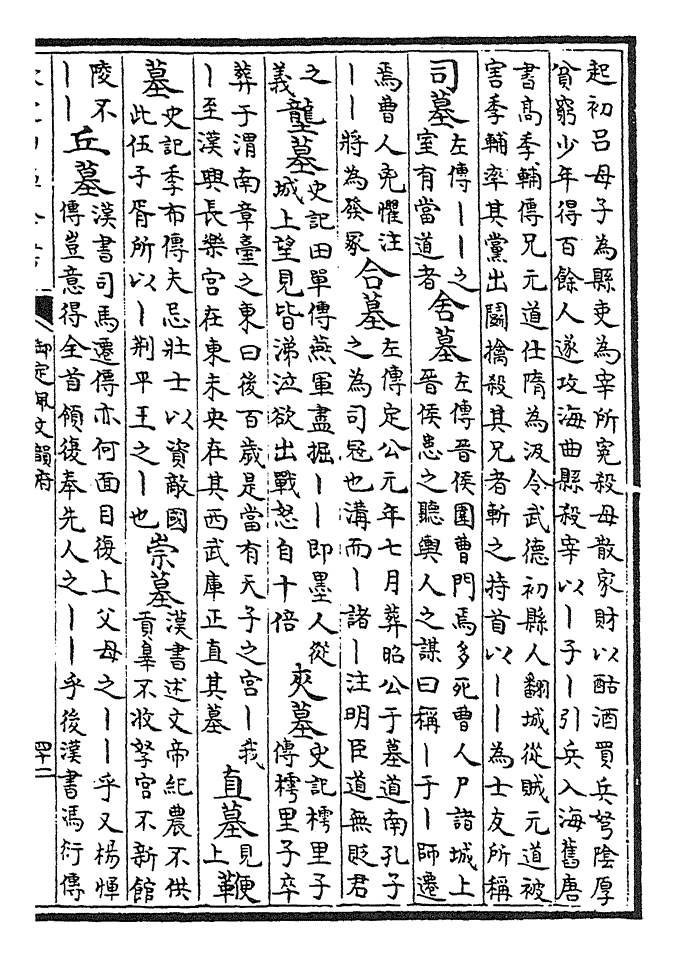 起初吕母子為縣吏為宰所寃殺母散家財以酤酒買兵弩隂厚
貧窮少年得百餘人遂攻海曲縣殺宰以丨子丨引兵入海舊唐
書髙季輔傳兄元道仕隋為汲令武德初縣人翻城從賊元道被
害季輔率其黨出鬭擒殺其兄者斬之持首以丨丨為士友所稱
司墓左傳丨丨之室有當道者舍墓左傳晉侯圍曹門焉多死曹人尸諸城上晉侯患之聽輿人之謀曰稱丨于丨師遷
焉曹人兇懼注丨丨將為發冢合墓左傳定公元年七月葬昭公于墓道南孔子之為司冦也溝而丨諸丨注明臣道無貶君
之義壟墓史記田單傳燕軍盡掘丨丨即墨人從城上望見皆涕泣欲出戰怒自十倍夾墓史記樗里子傳樗里子卒
葬于渭南章臺之東曰後百歲是當有天子之宫丨我丨至漢興長樂宫在東未央在其西武庫正直其墓直墓見上鞭
墓史記季布傳夫忌壯士以資敵國此伍子胥所以丨荆平王之丨也崇墓漢書述文帝紀農不供貢辠不收孥宫不新館
陵不丨丨丘墓漢書司馬遷傳亦何面目復上父母之丨丨乎又楊惲傳豈意得全首領復奉先人之丨丨乎後漢書馮衍傳
御定佩文韻府
四十二